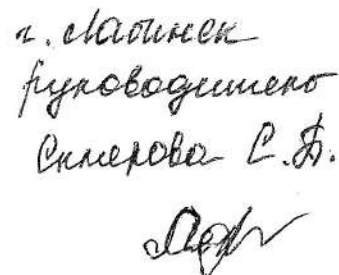 г. Лабинск
руководитель
Склерова С.Б.